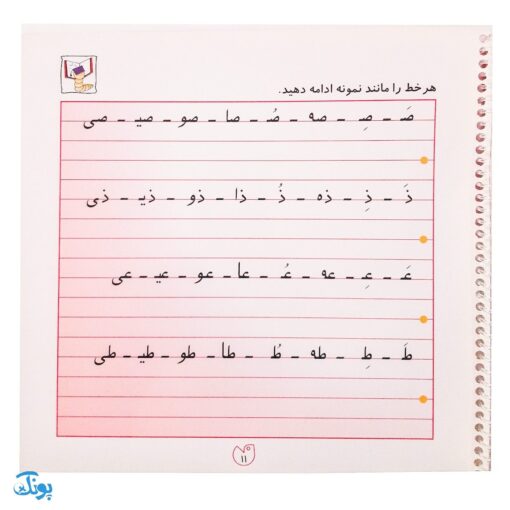 هر خط را مانند نمونه ادامه دهید.
صَ ـ صِ ـ صه ـ صُ ـ صا ـ صو ـ صیـ ـ صی
ذَ ـ ذِ ـ ذه ـ ذُ ـ ذا ـ ذو ـ ذیـ ـ ذی
عَ ـ عِ ـ عه ـ عُ ـ عا ـ عو ـ عیـ ـ عی
طَ ـ طِ ـ طه ـ طُ ـ طا ـ طو ـ طیـ ـ طی
۱۱
پونک